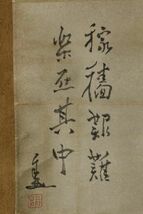 稼穡艱難
樂在其中